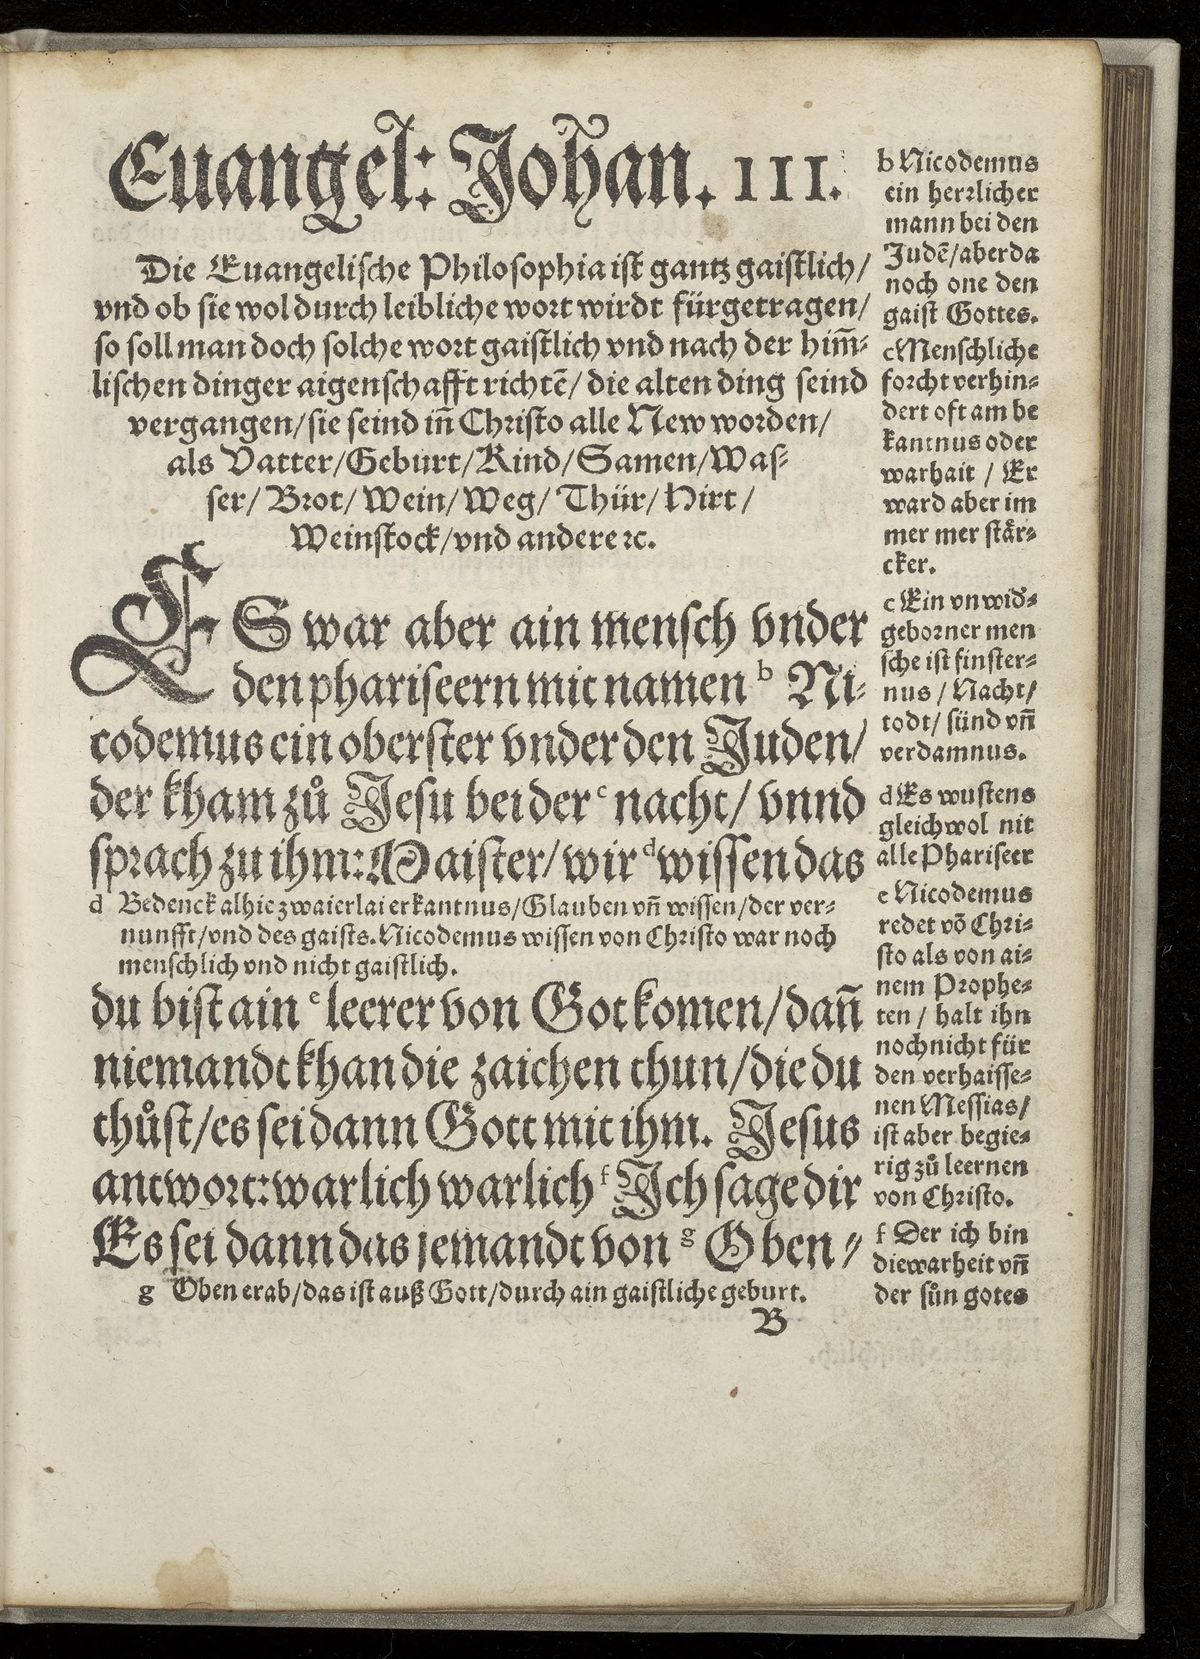 Euangel: Johan. III.
Die Euangelische Philosophia ist gantz gaistlich/
vnd ob sie wol durch leibliche wort wirdt fürgetragen/
so soll man doch solche wort gaistlich vnd nach der him̃-
lischen dinger aigenschafft richtẽ/ die alten ding seind
vergangen/ sie seind iñ Christo alle New worden/
als Vatter/Geburt/Kind/Samen/Was-
ser/ Brot/ Wein/ Weg/ Thür/ Hirt/
Weinstock/vnd andere ꝛc.
ES war aber ain mensch vnder
den phariseern mit namen b Ni-
codemus ein oberster vnder den Juden/
der kham zů Jesu bei der c nacht/ vnnd
sprach zu ihm: Maister/ wir d wissen das
d Bedenck alhie zwaierlai erkantnus/Glauben vñ wissen/der ver-
nunfft/vnd des gaists. Nicodemus wissen von Christo war noch
menschlich vnd nicht gaistlich.
du bist ain e leerer von Got komen/dañ
niemandt khan die zaichen thun/die du
thůst/es sei dann Gott mit ihm. Jesus
antwort: warlich warlich f Ich sage dir
Es sei dann das jemandt von g Oben-
g Oben erab/das ist auß Gott/durch ain gaistliche geburt.
B
b Nicodemus
ein herrlicher
mann bei den
Judẽ/aber da
noch one den
gaist Gottes.
c Menschliche
forcht verhin-
dert oft am be
kantnus oder
warhait / Er
ward aber im
mer mer stär-
cker.
c Ein vnwid-
geborner men
sche ist finster-
nus / Nacht/
todt/ sünd vñ
verdamnus.
d Es wustens
gleich wol nit
alle Phariseer
e Nicodemus
redet võ Chri-
sto als von ai-
nem Prophe-
ten / halt ihn
noch nicht für
den verhaisse-
nen Messias/
ist aber begie-
rig zů leernen
von Christo.
f Der ich bin
die warheit vñ
der sůn gotes